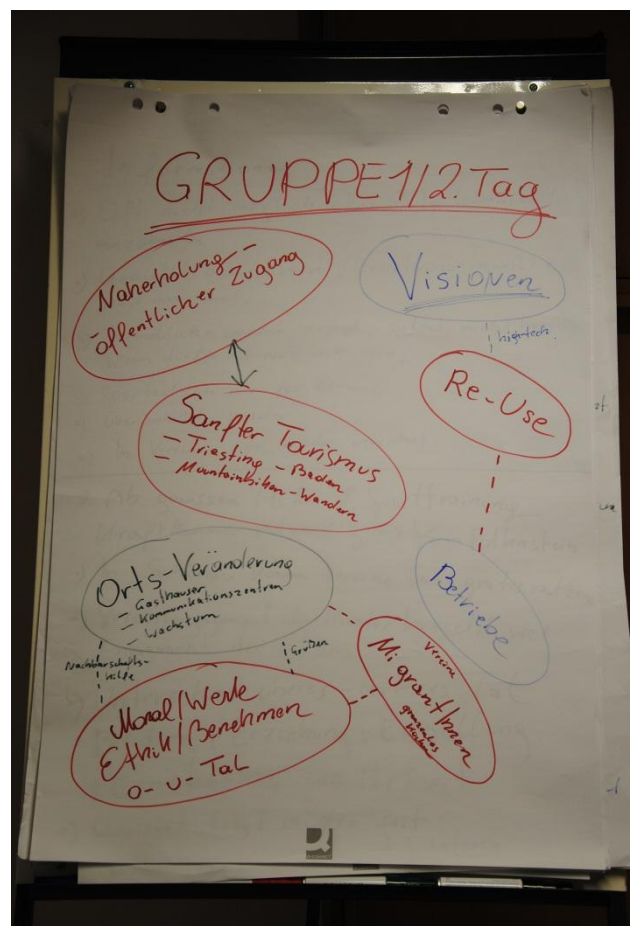 GRUPPE 1/2. Tag
Naherholung -
öffentlicher Zugang
Visionen
high-tech.
Re-Use
Sanfter Tourismus
- Triesting - Baden
- Mountainbiken - Wandern
Orts-Veränderung
- Gasthäuser
- Kommunikationszentren
- Wachstum
Betriebe
Nachbarschafts-
hilfe
Grüßen
Vereine
MigrantInnen
Moral/Werte
Ethik/Benehmen
o- u- Tal